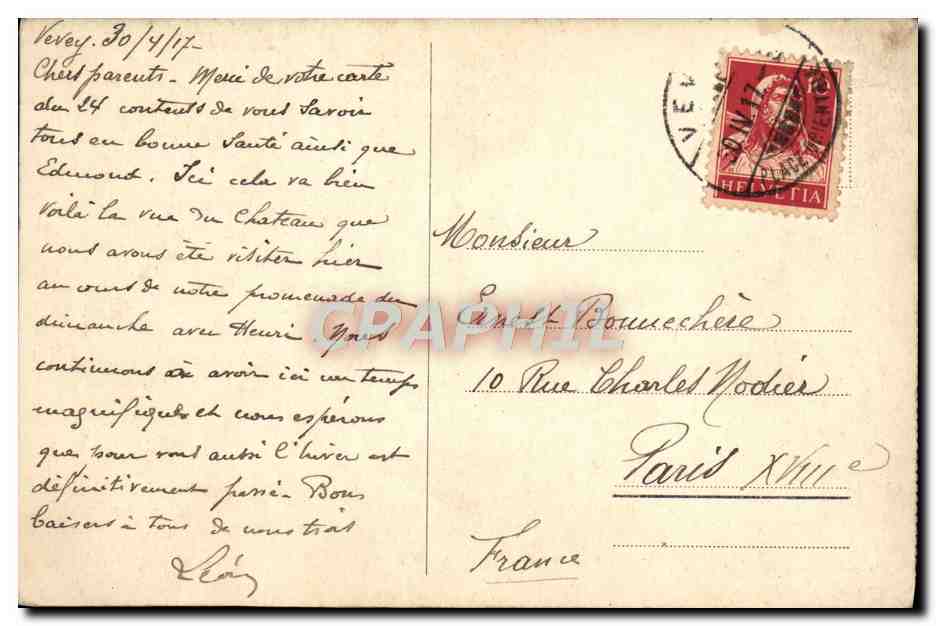 Vevey. 30/4/17-
Chers parents - Merci de votre carte
du 24 contents de vous savoir
tous en bonne santé ainsi que
Edmond. Ici cela va bien
Voilà la vue du Chateau que
nous avons été visiter hier
au cours de notre promenade du
dimanche avec Henri Nous
continuons à avoir ici un temps
magnifique et nous espérons
que pour vous aussi l'hiver est
définitivement passé - Bons
baisers à tous de nous trois
Léon
VEV
30.IV.17
PLACE ORIENTALE
10
HELVETIA
Monsieur
Ernest Bonnechère
10 Rue Charles Nodier
Paris XVIIIe
France
CPAPHIL